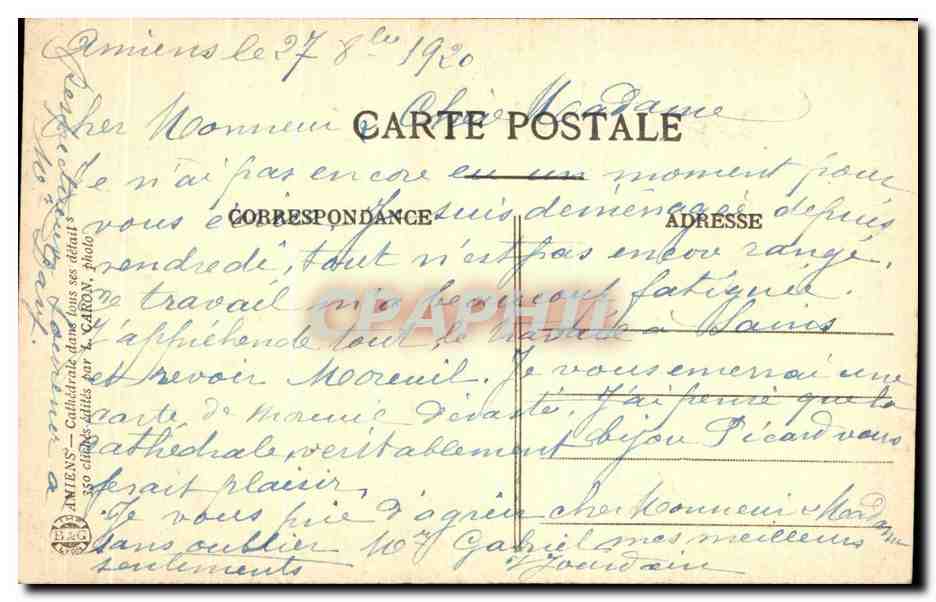 Amiens le 27 8bre 1920
Cher Monsieur, Chère Madame
CARTE POSTALE
Je n'ai pas encore eu un moment pour
vous écrire. Je suis déménagée depuis
CORRESPONDANCE
ADRESSE
vendredi, tout n'est pas encor rangé,
ce travail m'a beaucoup fatiguée.
CPAPHIL
J'appréhende tour de à Sains
et revoir Moreuil. Je vous enverrai une
carte de Moreuil dévasté. J'ai pensé que la
cathédrale, véritablement bijou Picard vous
ferait plaisir.
Je vous prie d'agréer cher Monsieur Madame
sans oublier Mr Gabriel mes meilleurs
sentiments Jourdain
souvenir à
Mon
AMIENS — Cathédrale dans tous ses détails
350 clichés édités par L. CARON, photo
B&G